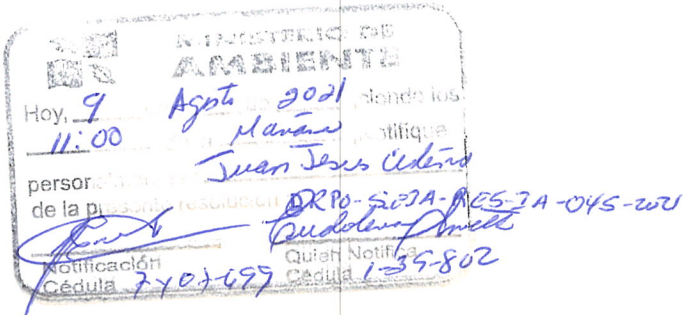 MINISTERIO DE
AMBIENTE
Hoy, 9 Agosto 2021 siendo los
11:00 Mañana notifique
Juan Jesus Cedeño
persor
de la presente resolución DRPO-SEIA-RES-IA-045-2021
Notificación Quien Notifica
Cédula 7-707-699 Cédula 1-39-802